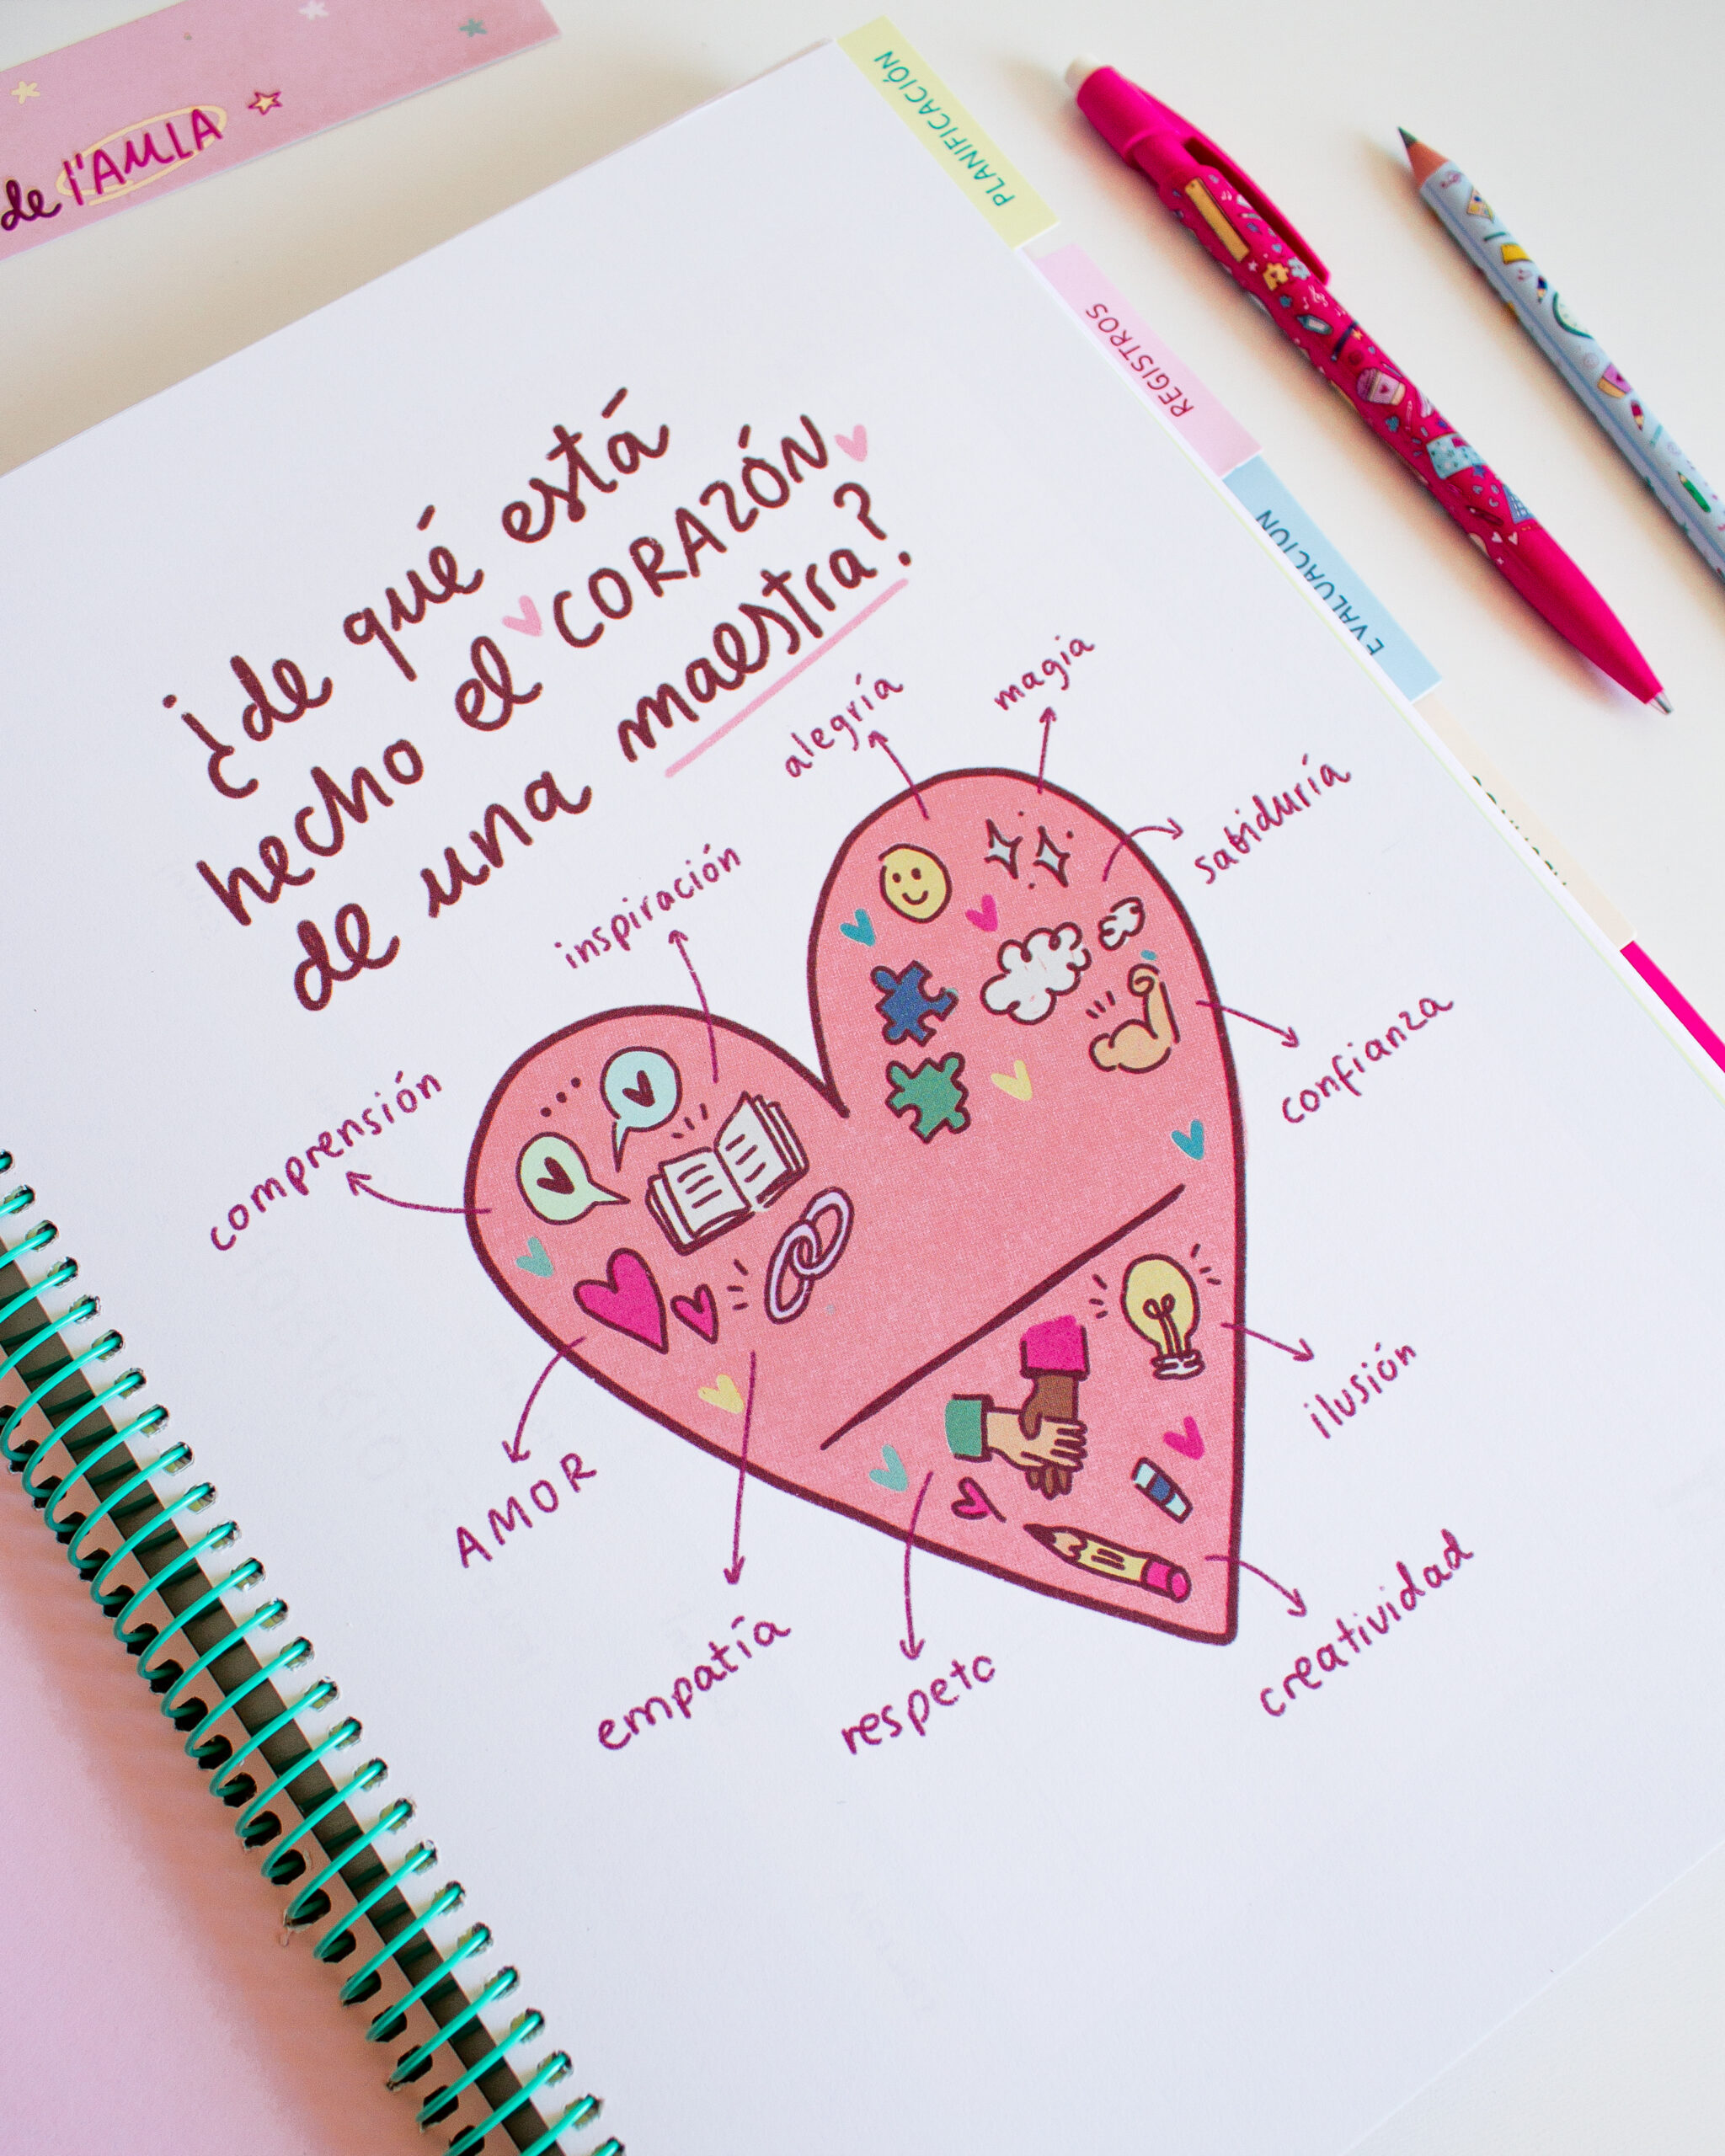 de l'AULA
PLANIFICACIÓN
REGISTROS
EVALUACIÓN
¿de qué está
hecho el CORAZÓN
de una maestra?
alegría
magia
sabiduría
inspiración
confianza
comprensión
ilusión
AMOR
empatía
respeto
creatividad